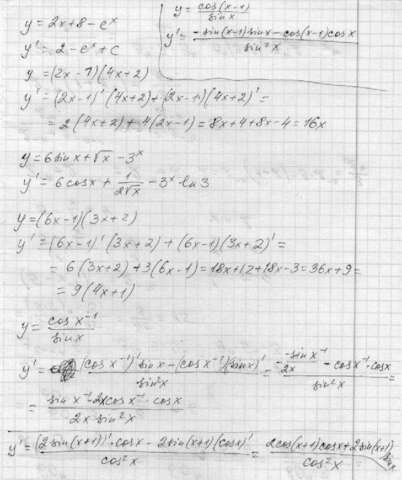 y = 2x + 8 - e^x
y' = 2 - e^x + c
y = (2x - 1)(4x + 2)
y' = (2x - 1)' (4x + 2) + (2x - 1)(4x + 2)' =
= 2(4x + 2) + 4(2x - 1) = 8x + 4 + 8x - 4 = 16x
y = cos(x-1) / sin x
y' = -sin(x-1) sin x - cos(x-1) cos x / sin² x
y = 6 sin x + √x - 3^x
y' = 6 cos x + 1/(2√x) - 3^x ln 3
y = (6x - 1)(3x + 2)
y' = (6x - 1)' (3x + 2) + (6x - 1)(3x + 2)' =
= 6(3x + 2) + 3(6x - 1) = 18x + 12 + 18x - 3 = 36x + 9 =
= 9(4x + 1)
y = cos x^-1 / sin x
y' = (cos x^-1)' sin x - (cos x^-1)(sin x)' / sin² x = -sin x^-1 / 2x - cos x^-1 · cos x / sin² x =
= sin x^-1 · 2x cos x^-1 · cos x / 2x · sin² x
y' = (2 sin(x+1))' · cos x - 2 sin(x+1)(cos x)' / cos² x = 2 cos(x+1) cos x + 2 sin(x+1) sin x / cos² x